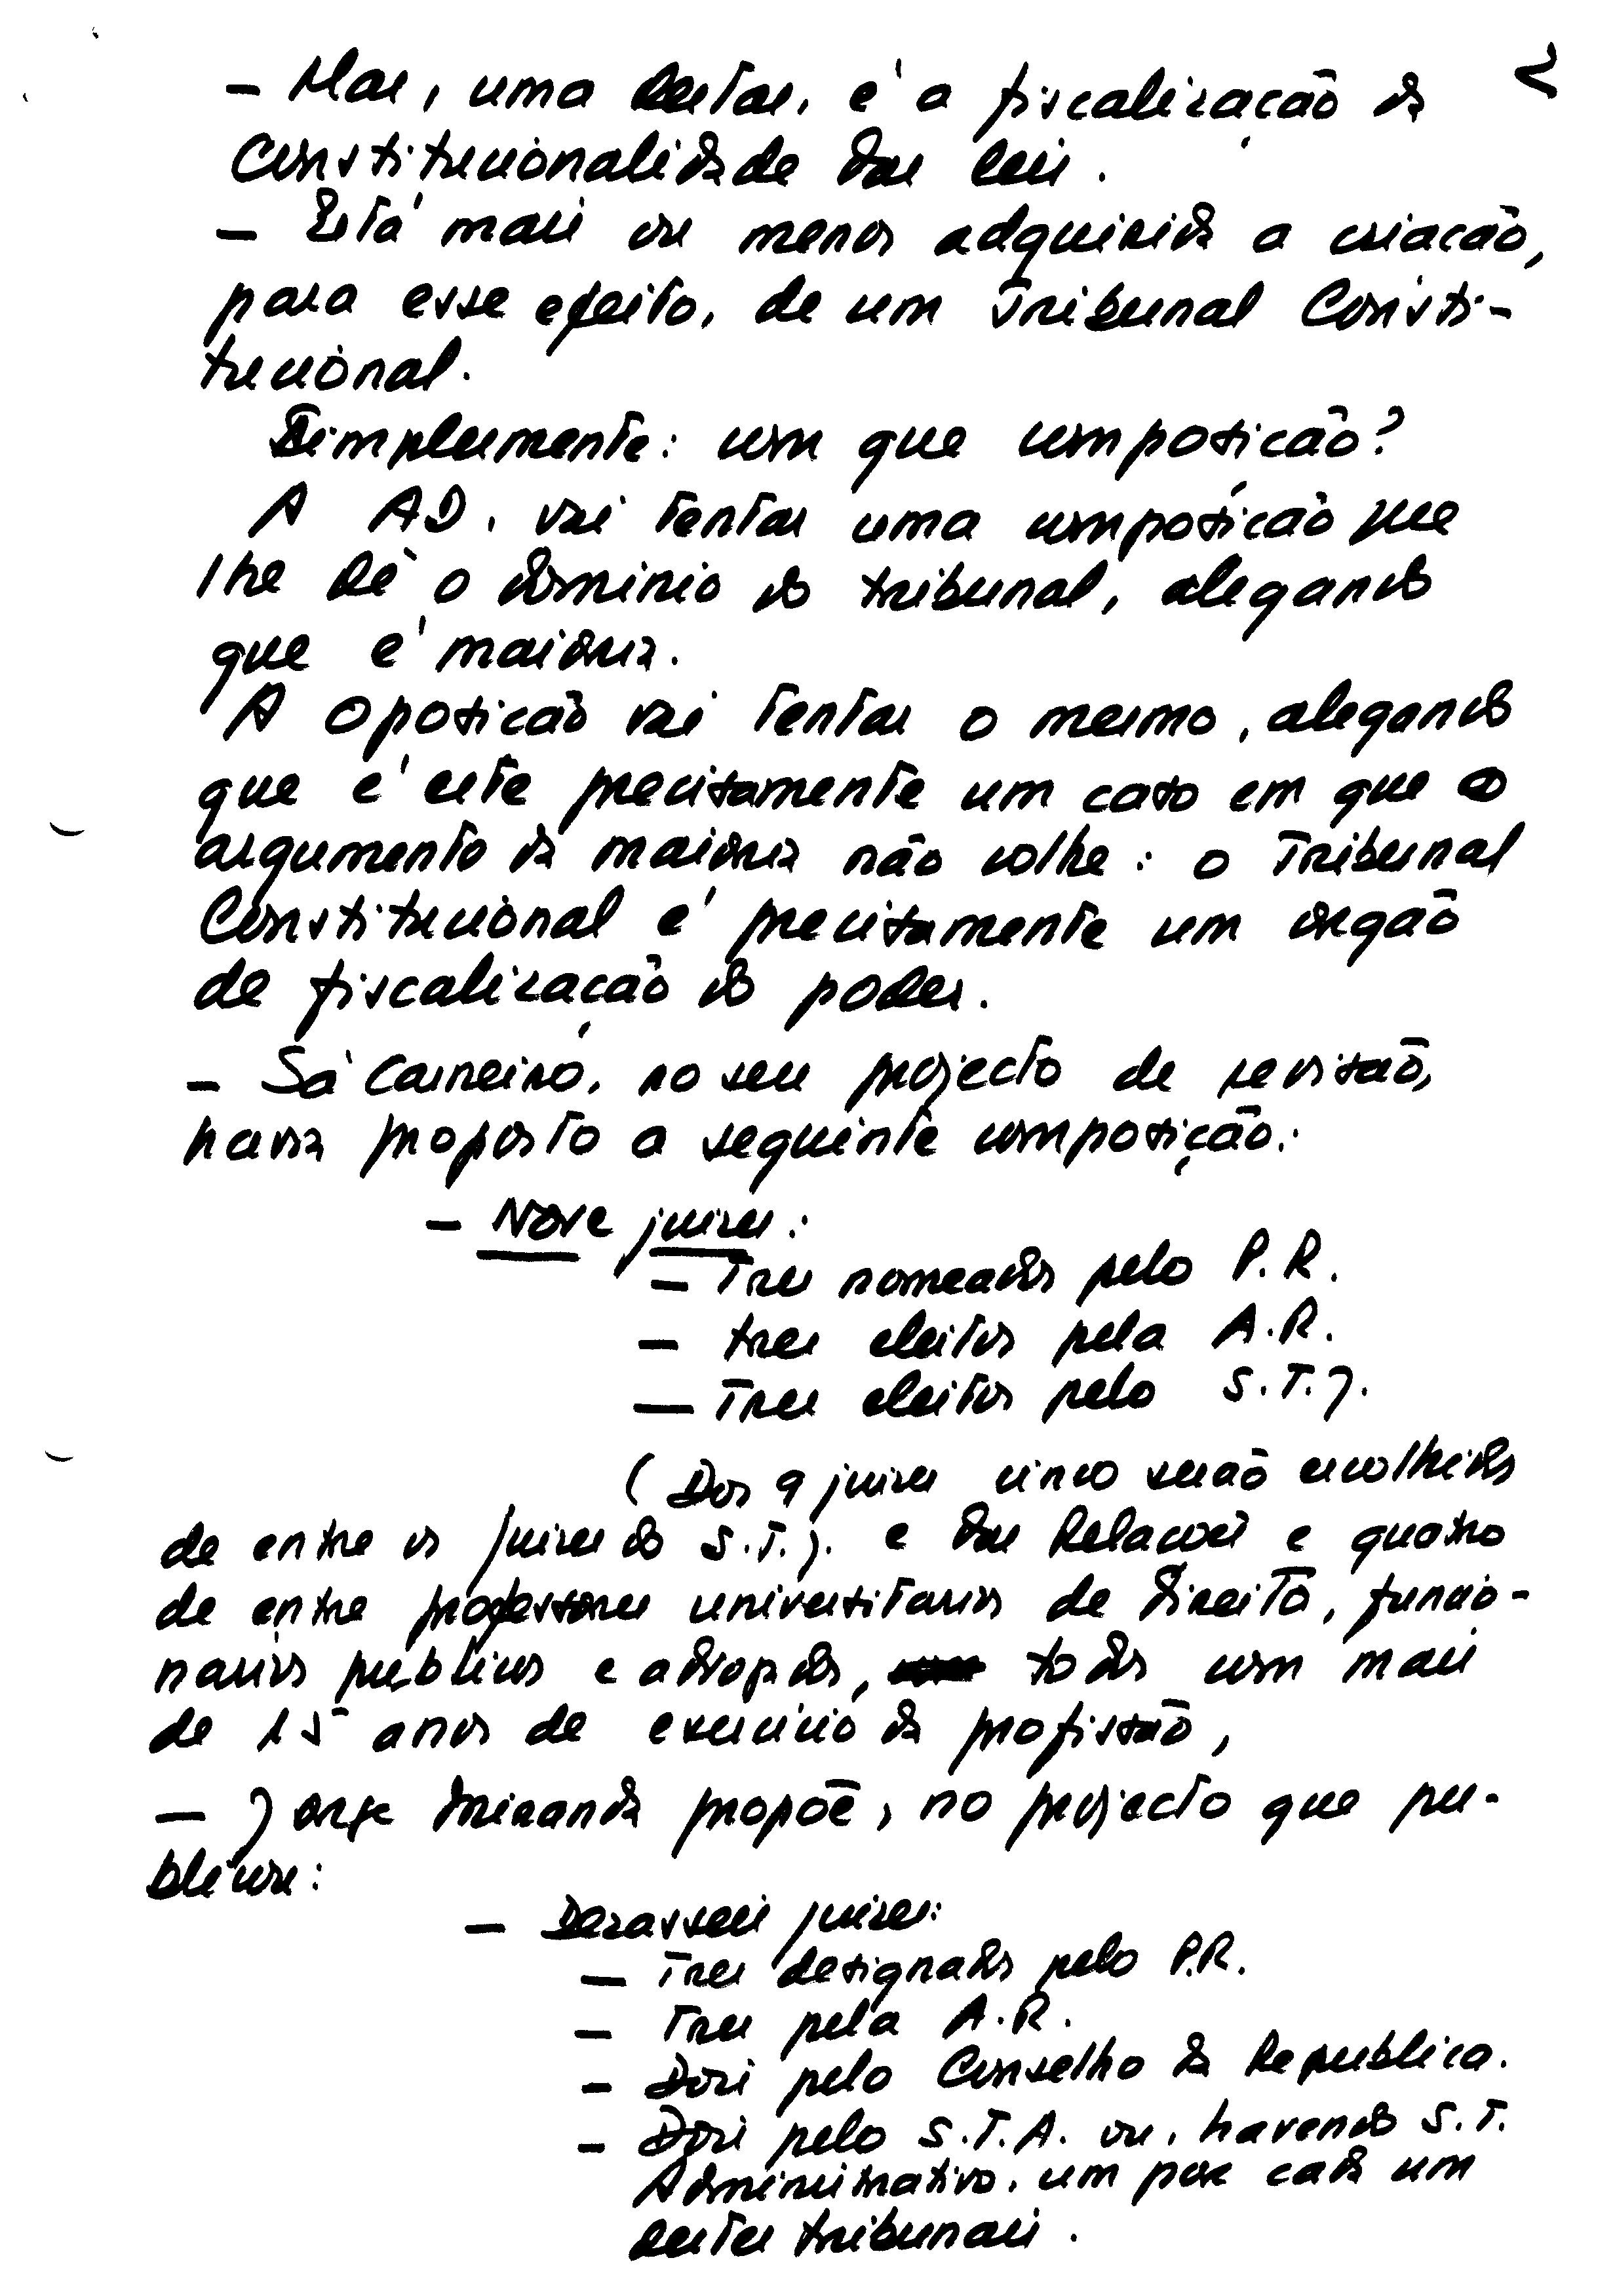 2
- Mas, uma destas, é a fiscalização da
Constitucionalidade das leis.
- Está mais ou menos adquirida a criacão,
para esse efeito, de um Tribunal Consti-
tucional.
Simplesmente: com que composicão?
A AD, vai tentar uma composição que
lhe dê o dominio do tribunal, alegando
que é maioria.
A Oposicão vai tentar o mesmo, alegando
que é este precisamente um caso em que o
argumento da maioria não colhe: o Tribunal
Constitucional é precisamente um orgão
de fiscalização do poder.
- Sá Carneiro, no seu projecto de revisão,
havia proposto a seguinte composição:
- Nove juizes:
- Tres nomeados pelo P.R.
- tres eleitos pela A.R.
- Tres eleitos pelo S.T.J.
(Dos 9 juizes cinco serão escolhidos
de entre os juizes do S.T.J. e das Relacoes e quatro
de entre professores universitarios de Direito, funcio-
narios publicos e advogados, todos com mais
de 15 anos de exercicio da profissão,
- Jorge Miranda propõe, no projecto que pu-
blicou:
- Dezasseis juizes:
- Tres designados pelo P.R.
- Tres pela A.R.
- Dois pelo Conselho da Republica.
- Dois pelo S.T.A. ou, havendo S.T.
Administrativo, um por cada um
destes tribunais.